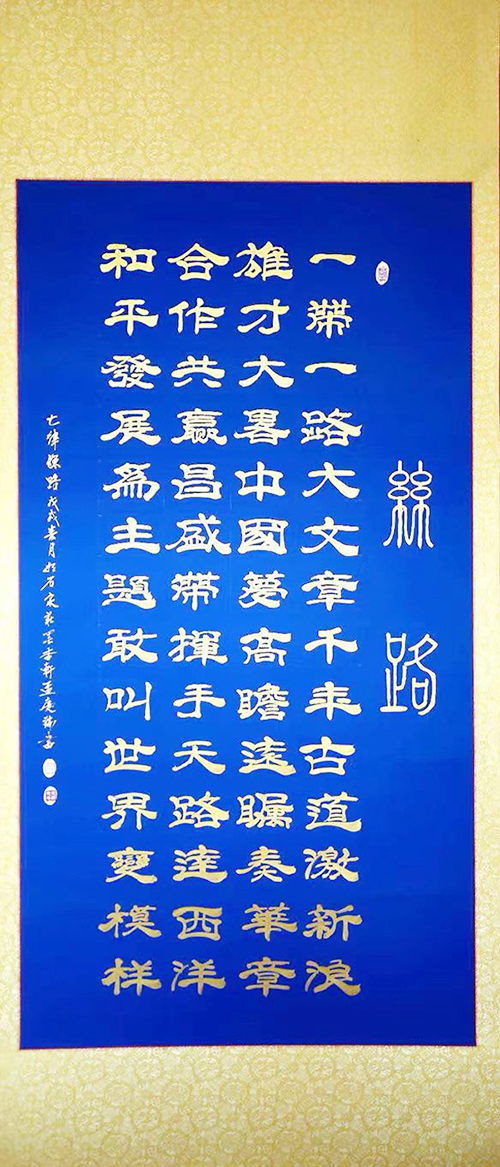 絲路
一帶一路大文章千年古道激新浪
雄才大畧中國夢高瞻遠矚奏華章
合作共赢昌盛帶揮手天路達西洋
和平發展為主題敢叫世界變模样
七律絲路戊戌春月於石家莊墨香軒孟慶瑞書